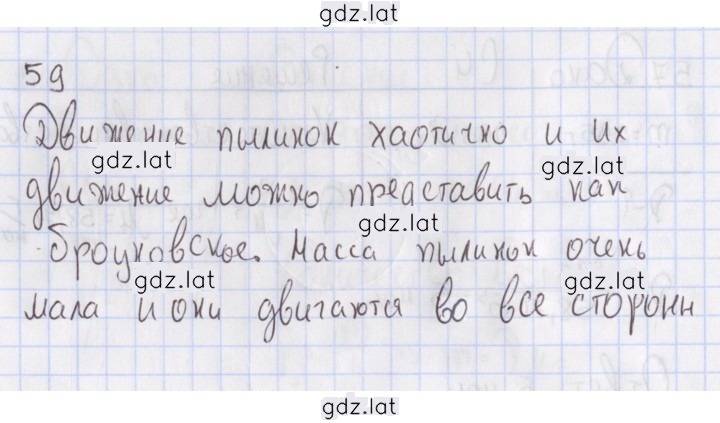 gdz.lat
59
Движение пылинок хаотично и их
gdz.lat gdz.lat
движение можно преаставить как
gdz.lat
броуновское. Масса пылинок очень
gdz.lat gdz.lat
мала и они двигаются во все сторонн
gdz.lat